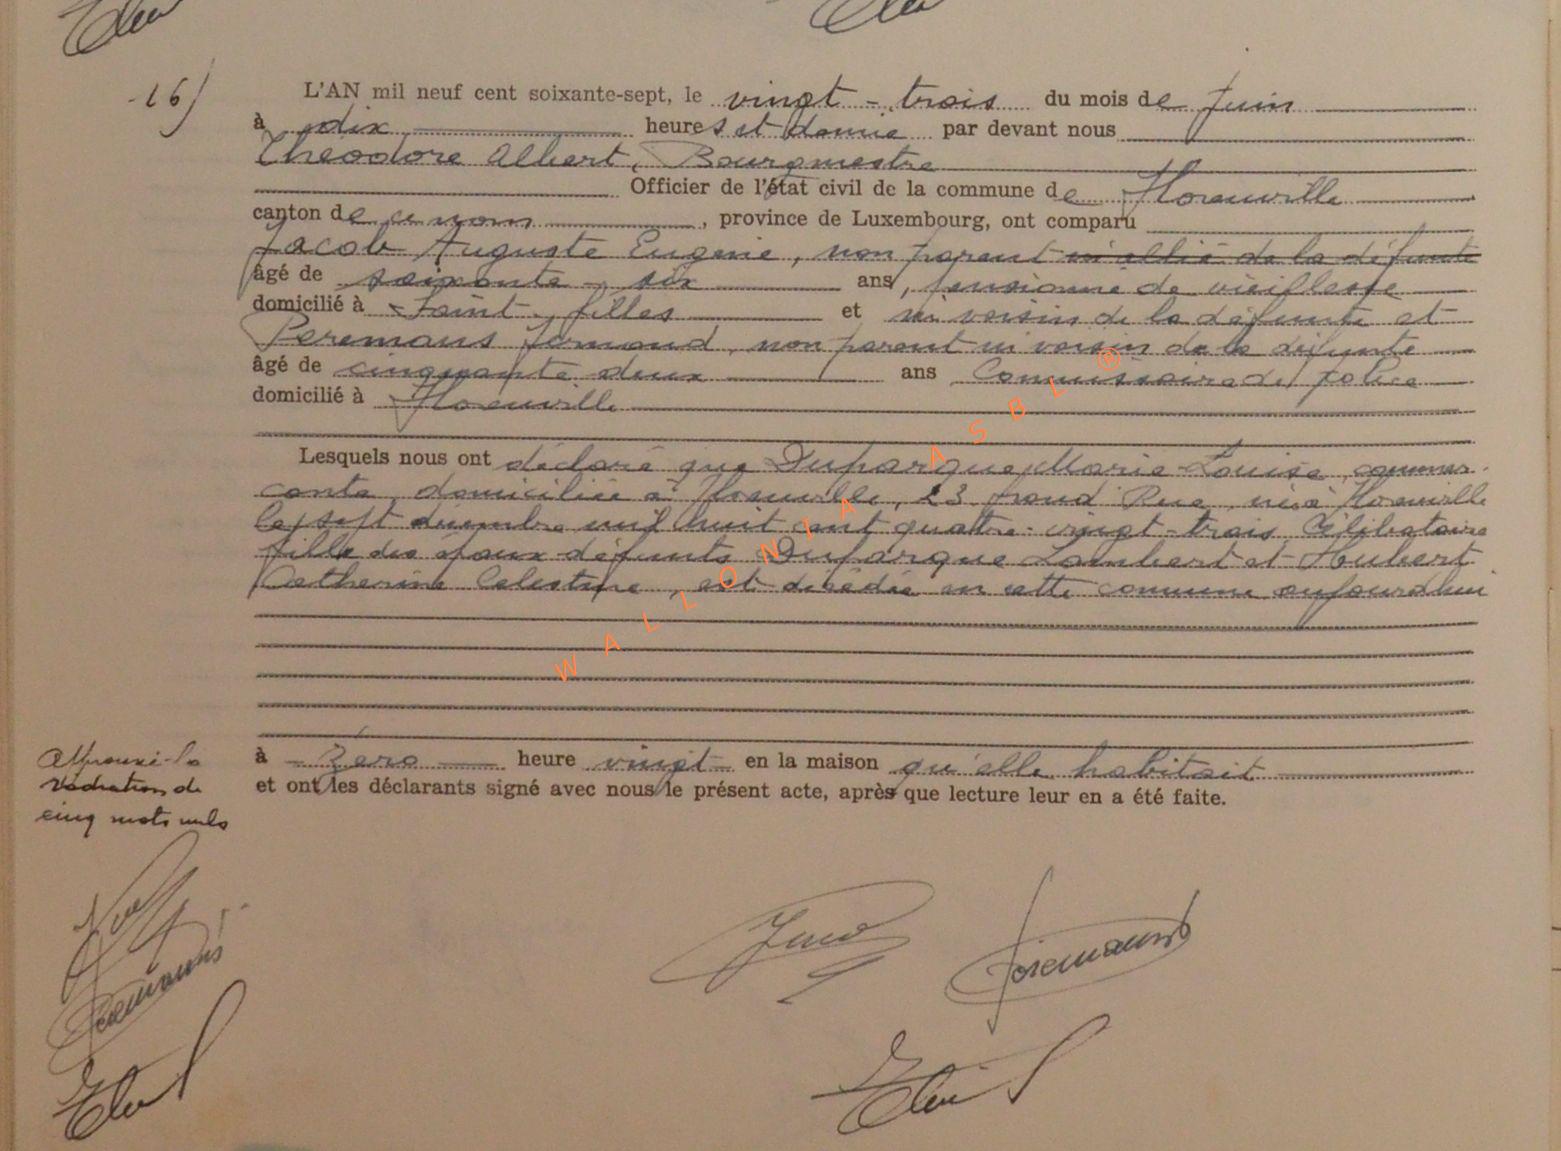 16)
L'AN mil neuf cent soixante-sept, le vingt-trois du mois de Juin
à dix heures et demie par devant nous
Théodore Albert, Bourgmestre
Officier de l'état civil de la commune de Florenville
canton de ce nom, province de Luxembourg, ont comparu
Jacob Auguste Eugène, non parent ni allié de la défunte
âgé de soixante-six ans, pensionné de vieillesse
domicilié à Saint-Gilles et ni voisin de la défunte et
Peremans Armand, non parent ni voisin de la défunte
âgé de cinquante deux ans Commissaire de police
domicilié à Florenville
Lesquels nous ont déclaré que Duparque Marie-Louise, commer-
çante, domiciliée à Florenville, 23 Rue, née à Florenville
le sept décembre mil huit cent quatre-vingt-trois Célibataire
fille des époux défunts Duparque Lambert et Hubert
Catherine Celestine, est décédée en cette commune aujourd'hui
à zéro heure vingt en la maison qu'elle habitait
et ont les déclarants signé avec nous le présent acte, après que lecture leur en a été faite.
Approuvé la
radiation de
cinq mots nuls
Peremans
Peremans
WALLONIA ASBL ®